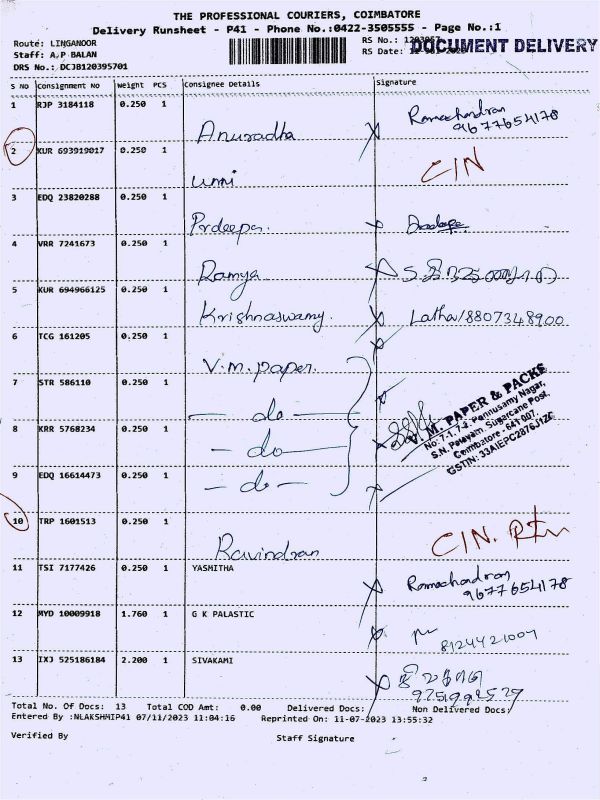 THE PROFESSIONAL COURIERS, COIMBATORE
Delivery Runsheet - P41 - Phone No.:0422-3505555 - Page No.:1
Route: LINGANOOR
Staff: A,P BALAN
DRS No.: DCJB120395701
RS No.:
RS Date:
DOCUMENT DELIVERY
S NO Consignment No Weight PCS Consignee Details Signature
1 RJP 3184118 0.250 1 Anuradha Ramachandran
9677654178
2 KUR 693919017 0.250 1 Unni CIN
3 EDQ 23820288 0.250 1 Prdeepa.
4 VRR 7241673 0.250 1 Ramya
5 KUR 694966125 0.250 1 Krishnaswamy. Latha/8807348900
6 TCG 161205 0.250 1 V.M. paper.
7 STR 586110 0.250 1 - do -
8 KRR 5768234 0.250 1 - do -
9 EDQ 16614473 0.250 1 - do -
M. PAPER & PACKS
No: 7-1, 7-2, Pannusamy Nagar,
S.N. Palayam, Sugarcane Post,
Coimbatore - 641 007.
GSTIN: 33AIEPC2876J1ZC
10 TRP 1601513 0.250 1 Ravindran CIN. Rtn
11 TSI 7177426 0.250 1 YASMITHA Ramachandran
9677654178
12 MYD 10009918 1.760 1 G K PALASTIC
8124421007
13 IXJ 525186184 2.200 1 SIVAKAMI
Total No. Of Docs: 13 Total COD Amt: 0.00 Delivered Docs: Non Delivered Docs:
Entered By :NLAKSHMIP41 07/11/2023 11:04:16 Reprinted On: 11-07-2023 13:55:32
Verified By Staff Signature